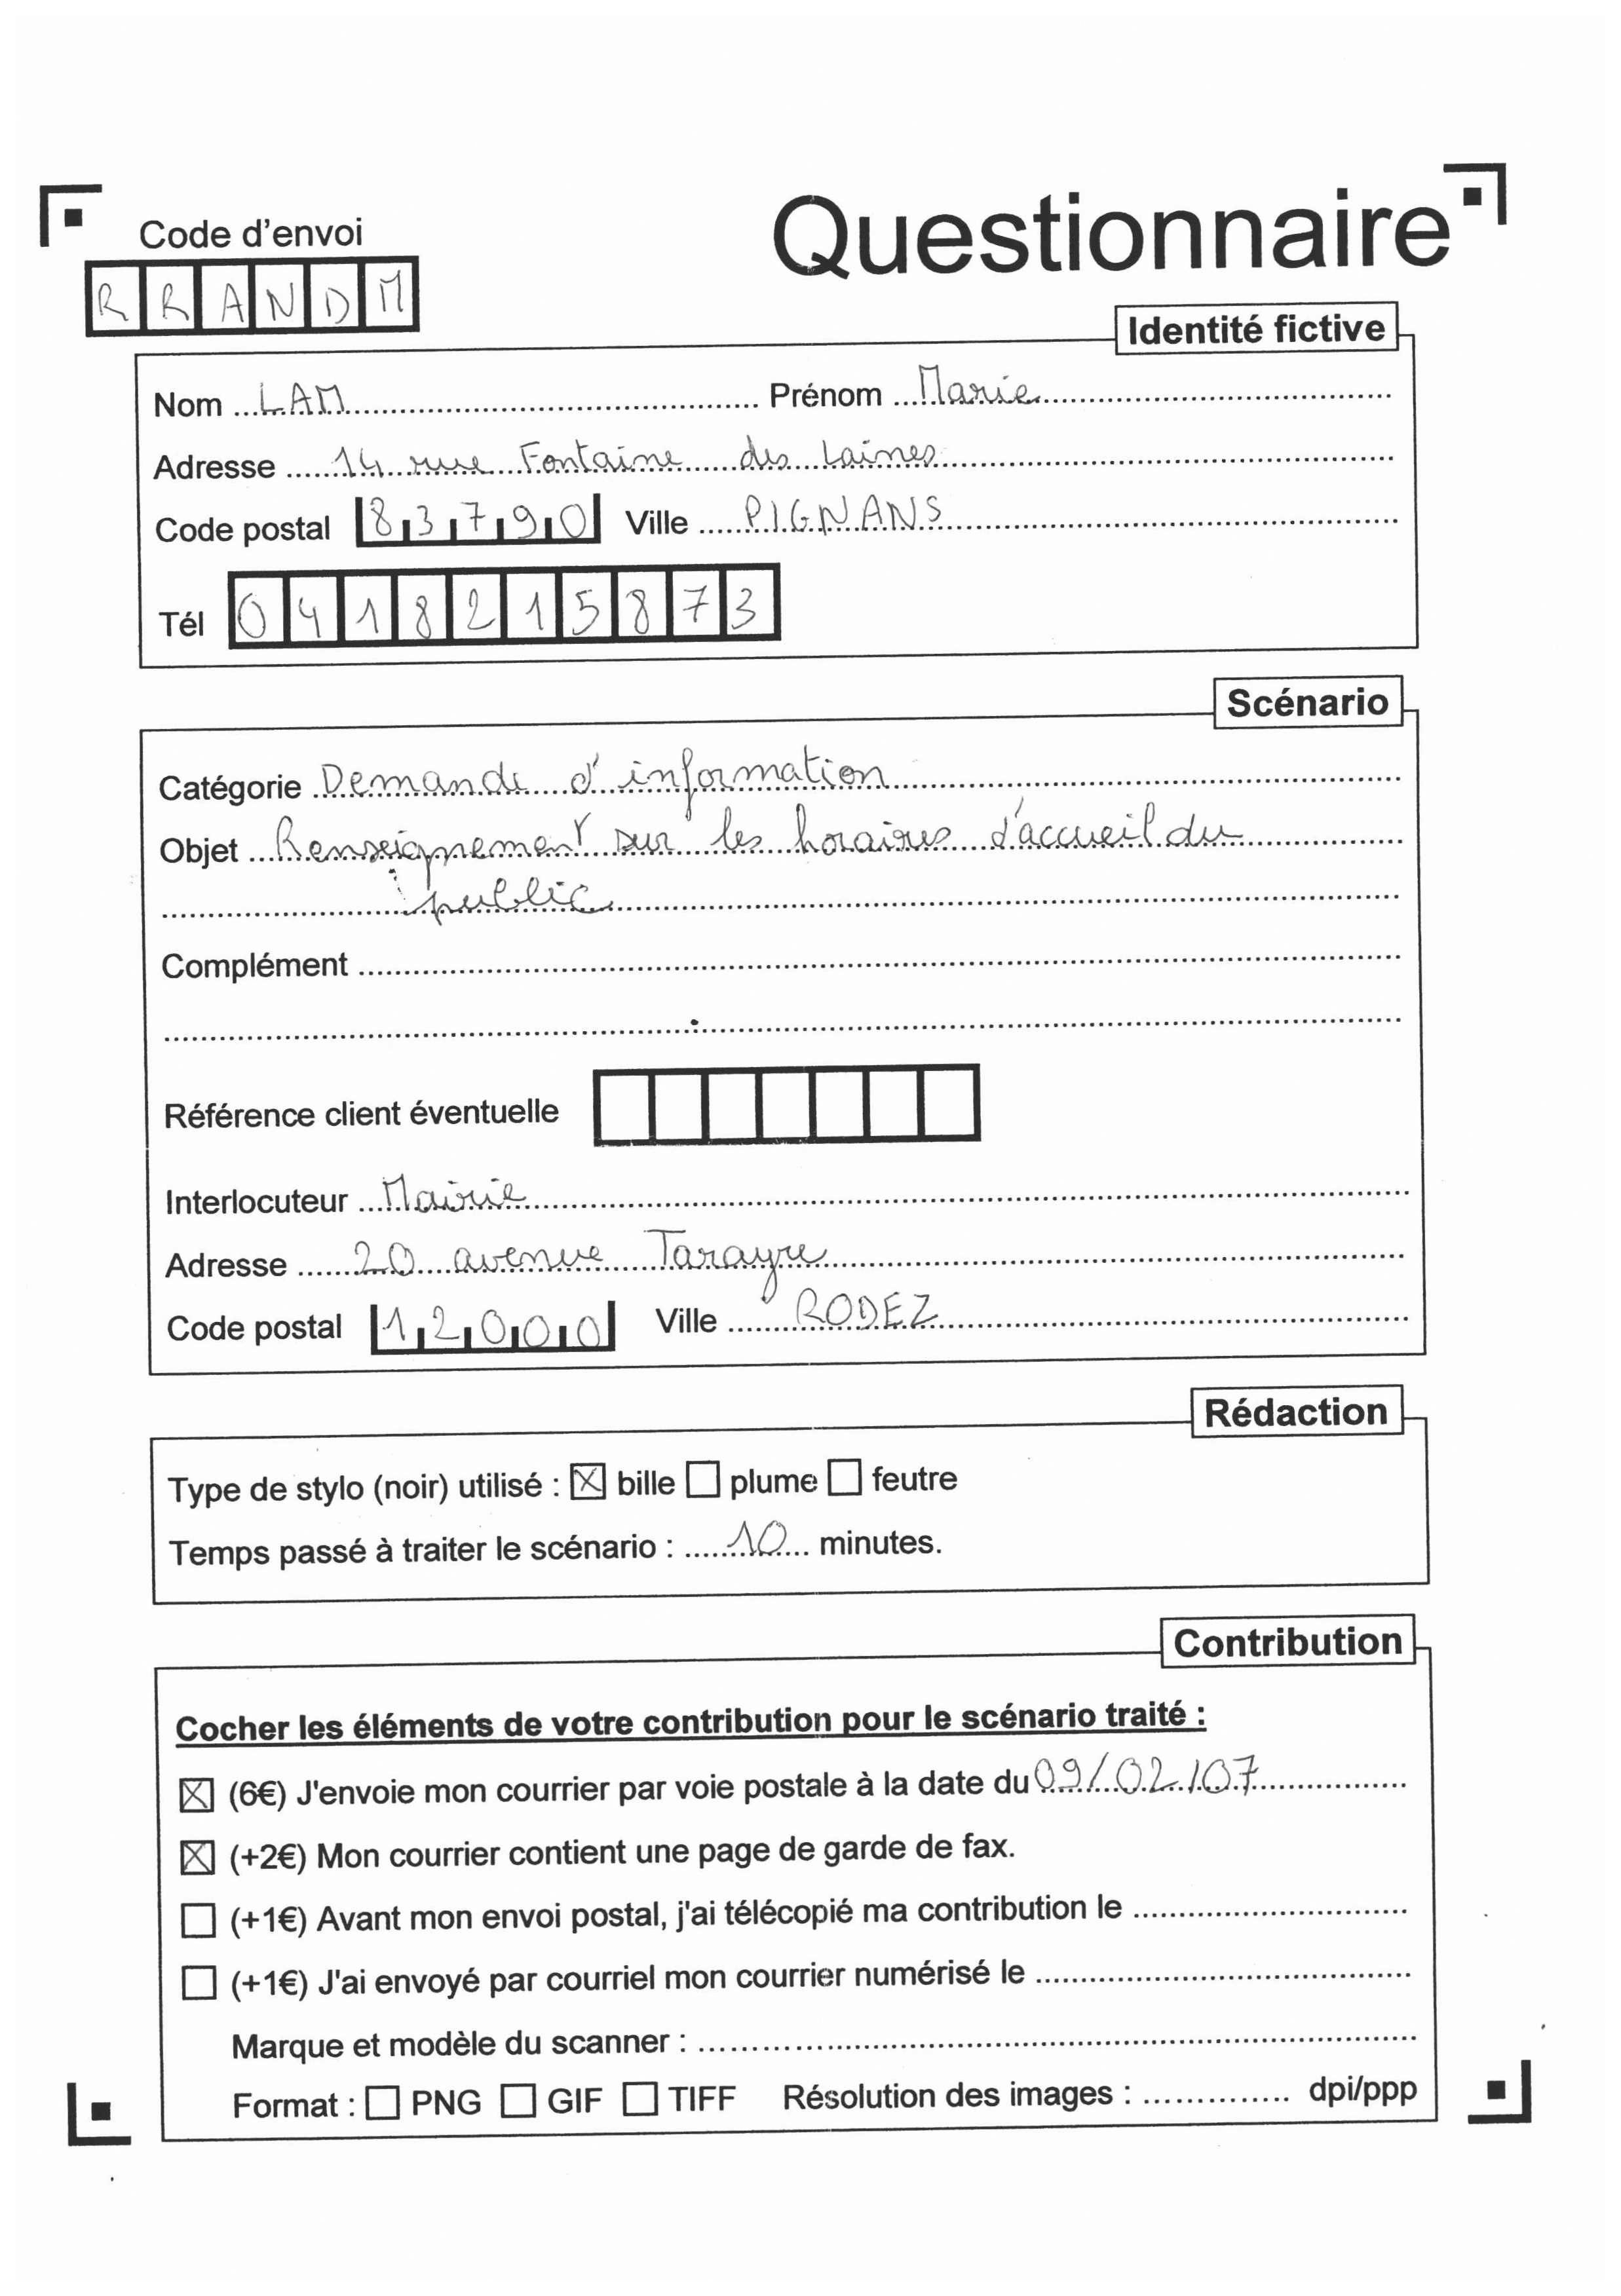 Questionnaire
Code d'envoi
RRANDM
Identité fictive
Nom LAM Prénom Marie
Adresse 14 rue Fontaine des Laines
Code postal 83790 Ville PIGNANS
Tél 0418215873
Scénario
Catégorie Demande d'information
Objet Renseignement sur les horaires d'accueil du
public
Complément
Référence client éventuelle
Interlocuteur Mairie
Adresse 20 avenue Tarayre
Code postal 12000 Ville RODEZ
Rédaction
Type de stylo (noir) utilisé : ☒ bille ☐ plume ☐ feutre
Temps passé à traiter le scénario : 10 minutes.
Contribution
Cocher les éléments de votre contribution pour le scénario traité :
☒ (6€) J'envoie mon courrier par voie postale à la date du 09/02/07
☒ (+2€) Mon courrier contient une page de garde de fax.
☐ (+1€) Avant mon envoi postal, j'ai télécopié ma contribution le
☐ (+1€) J'ai envoyé par courriel mon courrier numérisé le
Marque et modèle du scanner :
Format : ☐ PNG ☐ GIF ☐ TIFF Résolution des images : dpi/ppp